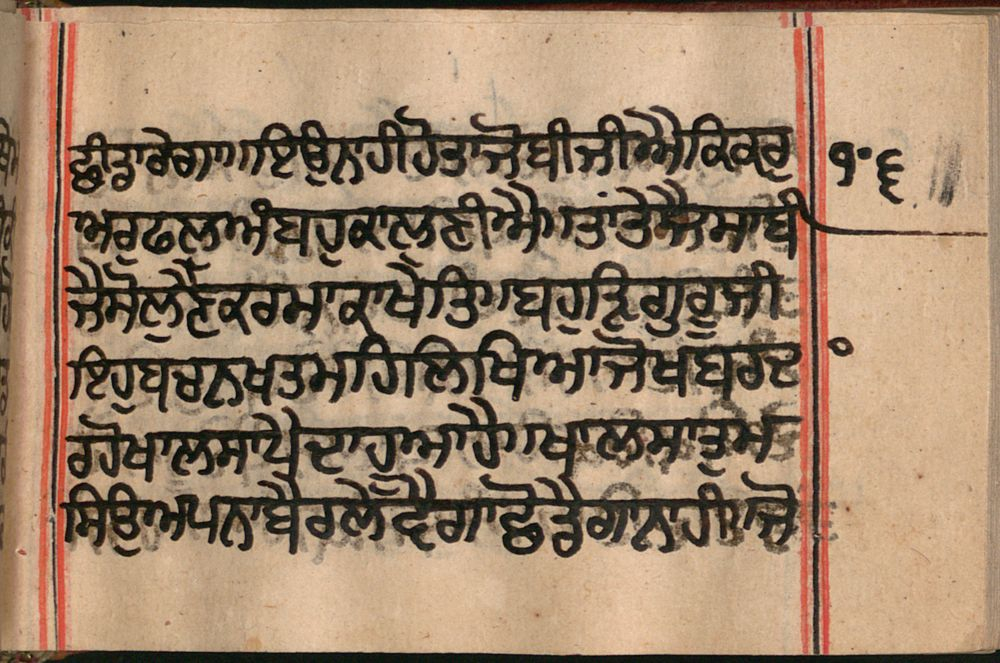 ਛੀੜਾਰੇਗਾ॥ਇਉਨਾਹੀਹੋਤਾਜੋਬੀਜੀਐਕਿਕਰ ੧੦੬
ਅਰੁਫਲਅੰਬਹੁਕਾਲਣੀਐ॥ਤਾਂਤੇਜੈਸਾਬੀ
ਜੈਸੋਲੁਣੈਕਰਮਾਕਾਖੇਤਿ॥ਬਹੁੜਿਗੁਰੂਜੀ
ਇਹੁਬਚਨਖਤਮਹਿਲਿਖਿਆਜੋਖਬਰਦਾ
ਰਹੋਖਾਲਸਾਪੈਦਾਹੁਆਹੈ॥ਖਾਲਸਾਤੁਮ
ਸਿਉਅਪਨਾਬੈਰਲੇਵੈਗਾਛੋਡੈਗਾਨਾਹੀ॥ਜੋ